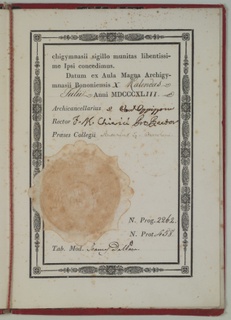 chigymnasii sigillo munitas libentissi-
me Ipsi concedimus.
Datum ex Aula Magna Archigy-
mnasii Bononiensis X Kalendas
Julii Anni MDCCCXLIII.
Archicancellarius
Rector F. M.
Praeses Collegii
N. Prog. 2262.
N. Prot. 458.
Tab. Mod.